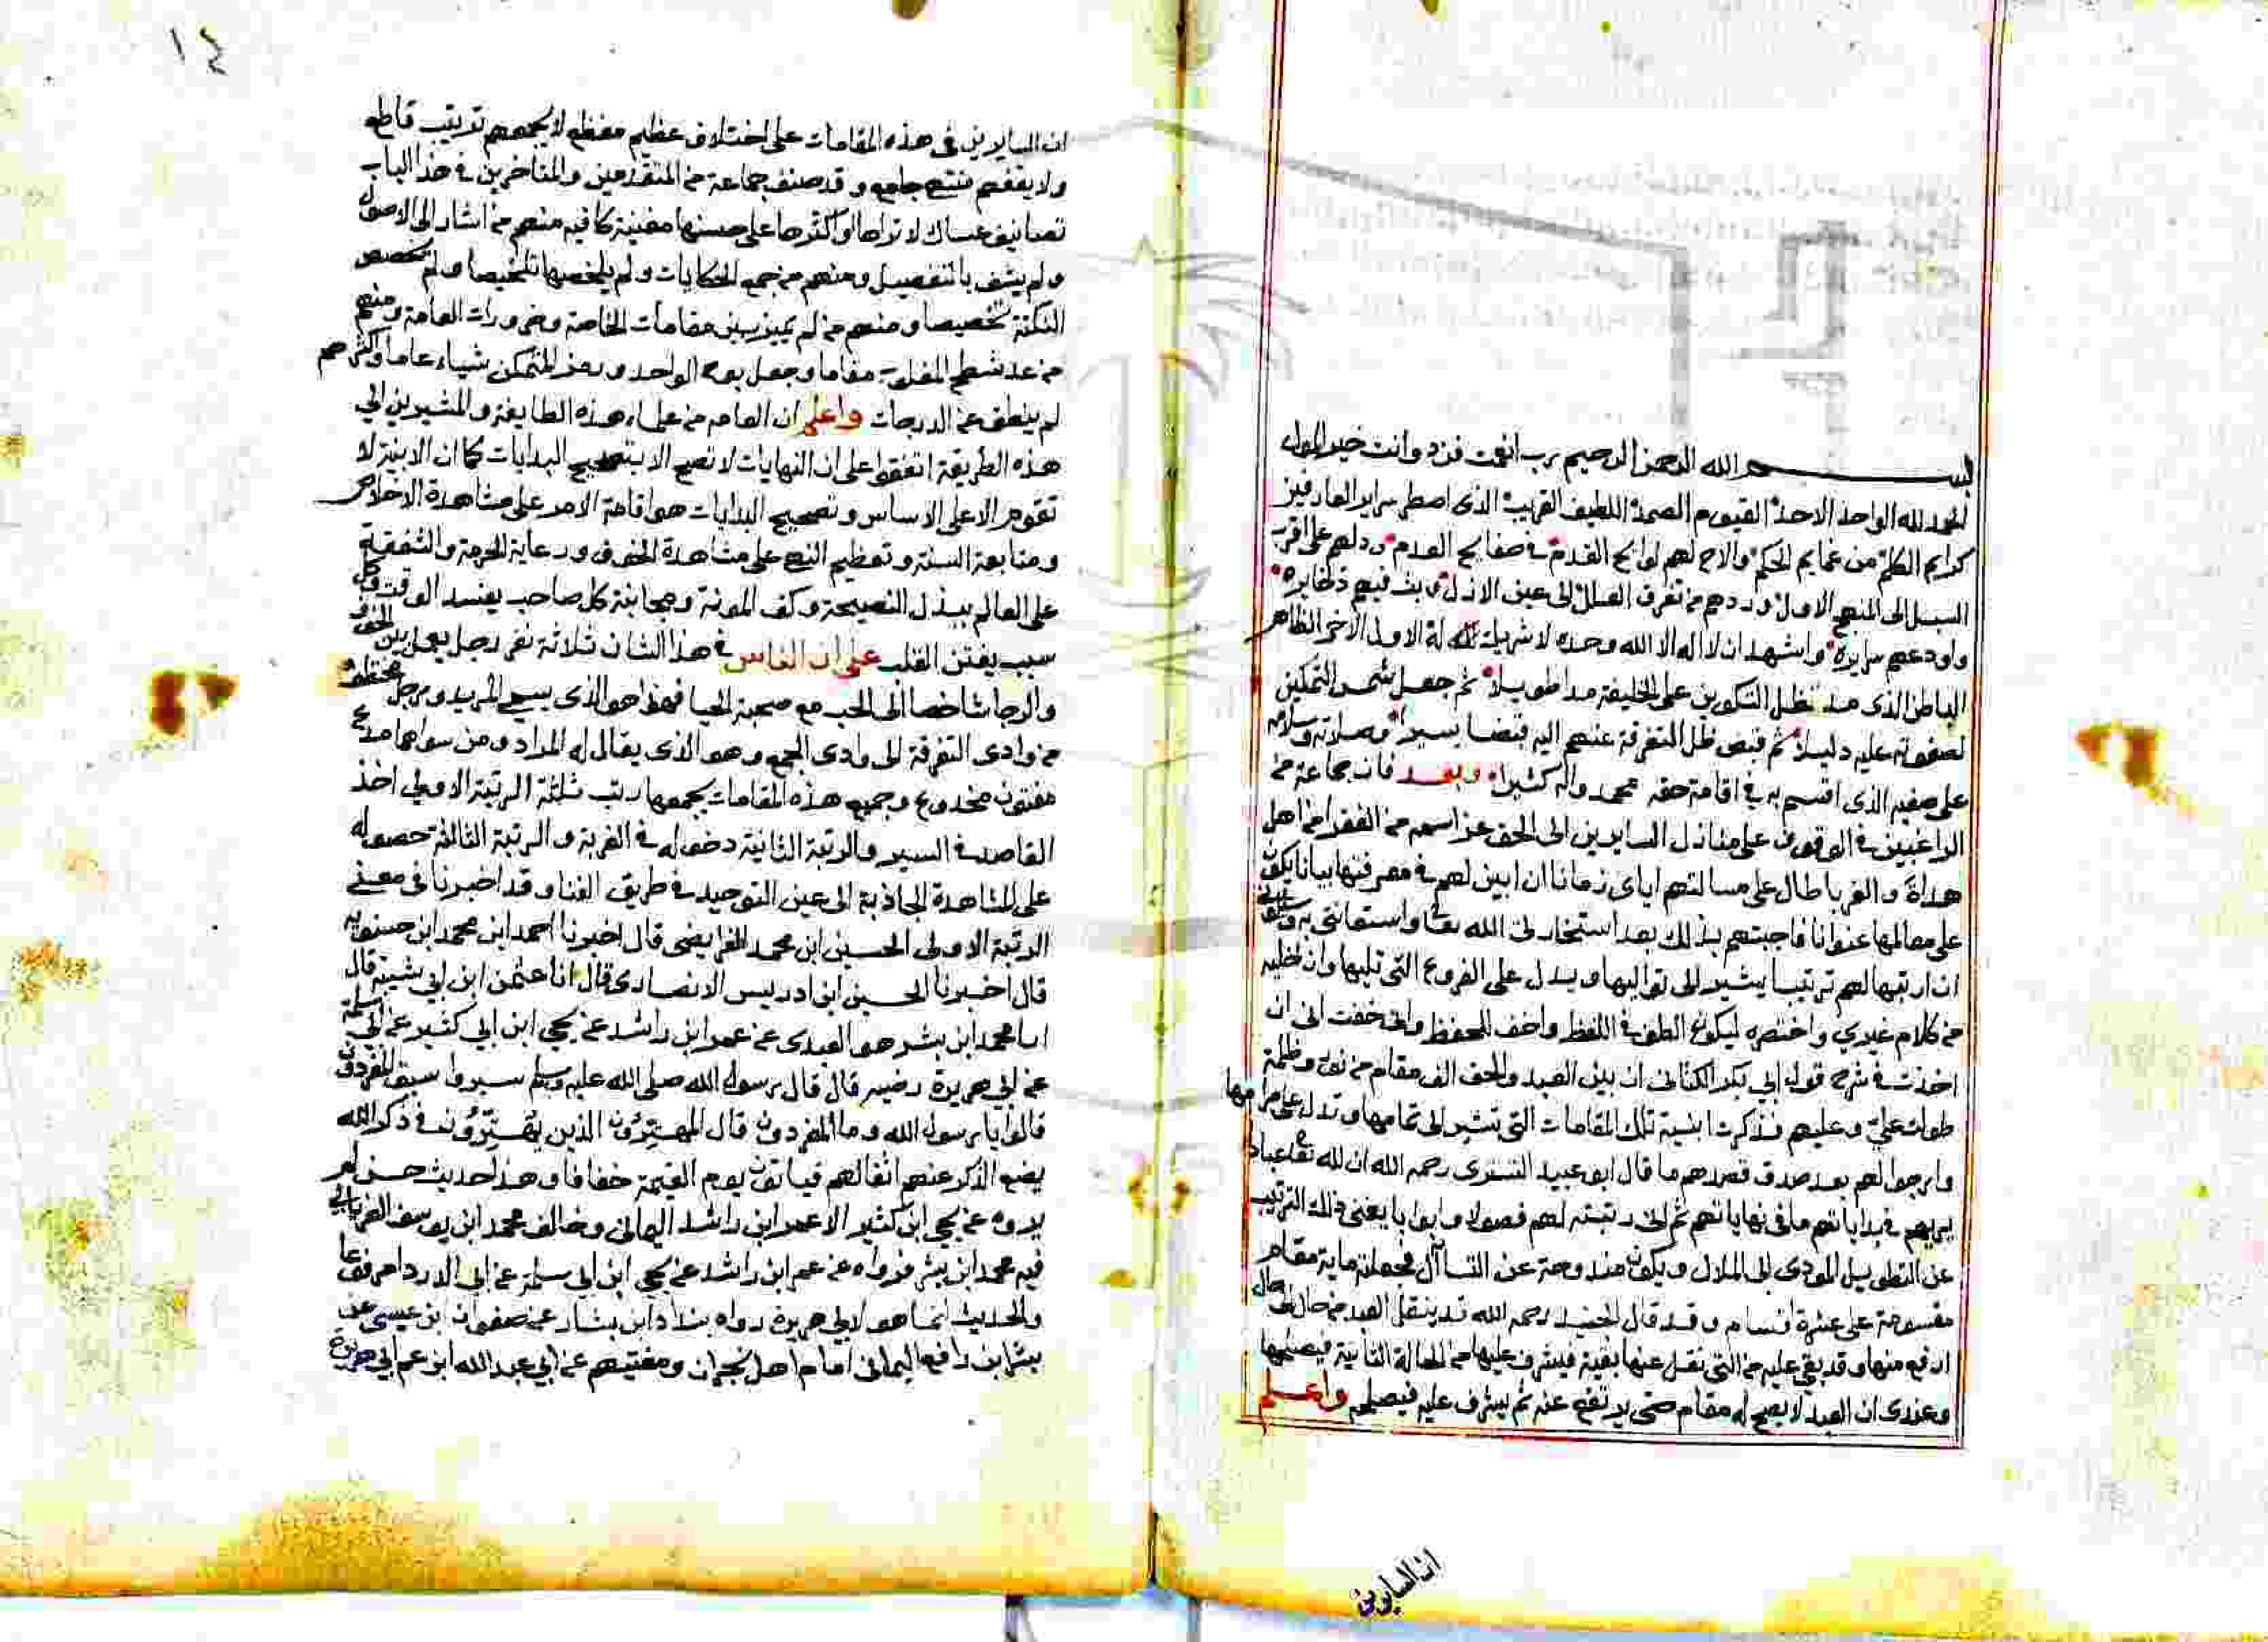 بسم الله الرحمن الرحيم رب انعمت فزد وانت خير المول
الحمد لله الواحد الاحد القيوم الصمد اللطيف القريب الذى امطر سراير العارفين
كرايم الكلم من غمايم الحكم والاح لهم لوايح القدم في صفايح العدم ودلهم على اقرب
السبل الى المنهج الاول وردهم من تفرق العلل الى عين الازل وبث فيهم ذخايره
واودعهم سرايره واشهد ان لا اله الا الله وحده لا شريك له الاول الاخر الظاهر
الباطن الذى مد ظل التكوين على الخليقة مدا طويلا ثم جعل شمس التمكين
لصفوته عليه دليلا ثم قبض ظل التفرقة عنهم اليه قبضا يسيرا وصلاته وسلامه
على صفيه الذى اقسم به في اقامة حقه محمد واله كثيرا وبعد فان جماعة من
الراغبين في الوقوف على منازل السايرين الى الحق عز اسمه من الفقرا من اهل
هداة والغربا طال على مسالتهم اياى زمانا ان ابين لهم في معرفتها بيانا يكون
على معالمها عنوانا فاجبتهم بذلك بعد استخارتى الله تعالى واستعانتى به وسالونى
ان ارتبها لهم ترتيبا يشير الى تواليها ويدل على الفروع التى تليها وان اخليه
من كلام غيري واختصره ليكون الطف في اللفظ واخف للحفظ وانى خفت انى ان
اخذت في شرح قول ابي بكر الكتانى ان بين العبد والحق الف مقام من نور وظلمة
طولت علي وعليهم فذكرت ابنية تلك المقامات التى تشير الى تمامها وتدل على مرامها
وارجوا لهم بعد صدق قصدهم ما قال ابو عبيد البسرى رحمه الله ان لله تعالى عبادا
يريهم في بداياتهم ما في نهاياتهم ثم انى رتبته لهم فصولا وابوابا يغنى ذلك الترتيب
عن التطويل المودى الى الملال ويكون مندوحة عن التسآل فجعلته ماية مقام
مقسومة على عشرة اقسام وقد قال الجنيد رحمه الله قد ينتقل العبد من حال الى حال
ارفع منها وقد بقي عليه من التى نقل عنها بقية فيشرف عليها من الحالة الثانية فيصلحها
وعندى ان العبد لا يصح له مقام حتى يرتفع عنه ثم يشرف عليه فيصلحه واعلم
ان السايرين
١٤
ان السايرين في هذه المقامات على اختلاف عظيم مفظع لا يجمعهم ترتيب قاطع
ولا يقفهم منتهى جامع وقد صنف جماعة من المتقدمين والمتاخرين في هذا الباب
تصانيف عساك لا تراها او اكثرها على حسنها مغنية كافيه منهم من اشار الى الاصول
ولم يشف بالتفصيل ومنهم من جمع الحكايات ولم يلخصها تلخيصا ولم يخصص
النكتة تخصيصا ومنهم من لم يميز بين مقامات الخاصة وضرورات العامة ومنهم
من عد شطح المغلوب مقاما وجعل بوح الواجد ورمز المتمكن شياء عاما واكثرهم
لم ينطق عن الدرجات واعلم ان العامه من علماء هذه الطايفة والمشيرين الي
هذه الطريقة اتفقوا على ان النهايات لا تصح الا بتصحيح البدايات كما ان الابنية لا
تقوم الا على الاساس وتصحيح البدايات هو اقامة الامر على مشاهدة الاخلاص
ومتابعة السنة وتعظيم النهى على مشاهدة الخوف ورعاية الحرمة والشفقة
على العالم ببذل النصيحة وكف المونة ومجانبة كل صاحب يفسد الوقت وكل
سبب يفتن القلب على ان الناس في هذا الشان ثلاثة نفر رجل يعمل بين الخوف
والرجا شاخصا الى الحب مع صحبة الحيا فهذا هو الذى يسمى المريد ورجل مختطف
من وادى التفرقة الى وادى الجمع وهو الذى يقال له المراد ومن سواهما مدع
مفتون مخدوع وجميع هذه المقامات يجمعها رتب ثلثة الرتبة الاولى اخذ
القاصد في السير والرتبة الثانية دخوله في الغربة والرتبة الثالثة حصوله
على المشاهدة الجاذبة الى عين التوحيد في طريق الفنا وقد اخبرنا في معنى
الرتبة الاولى الحسين ابن محمد الفرايضى قال اخبرنا احمد ابن محمد ابن حسنويه
قال اخبرنا الحسين ابن ادريس الانصارى قال انا عثمن ابن ابي شيبة قال
انا محمد ابن بشر هو العبدى عن عمر ابن راشد عن يحيى ابن ابي كثير عن ابي سلمة
عن ابي هريرة رضيه قال قال رسول الله صلى الله عليه وسلم سيروا سبق المفردون
قالوا يا رسول الله وما المفردون قال المهتزون الذين يهتزون في ذكر الله
يضع الذكر عنهم اثقالهم فياتون يوم القيمة خفافا وهذا حديث حسن لم
يروه عن يحيى ابن كثير الا عمر ابن راشد اليمانى وخالف محمد ابن يوسف الفريابي
فيه محمد ابن بشر فرواه عن عمر ابن راشد عن يحيى ابن ابي سلمة عن ابي الدردا مرفوعا
والحديث انما هو لابي هريرة رواه بندار ابن بشار عن صفوان بن عيسى عن
بشر ابن رافع اليمانى امام اهل نجران ومفتيهم عن ابي عبد الله ابن عم ابي هريرة